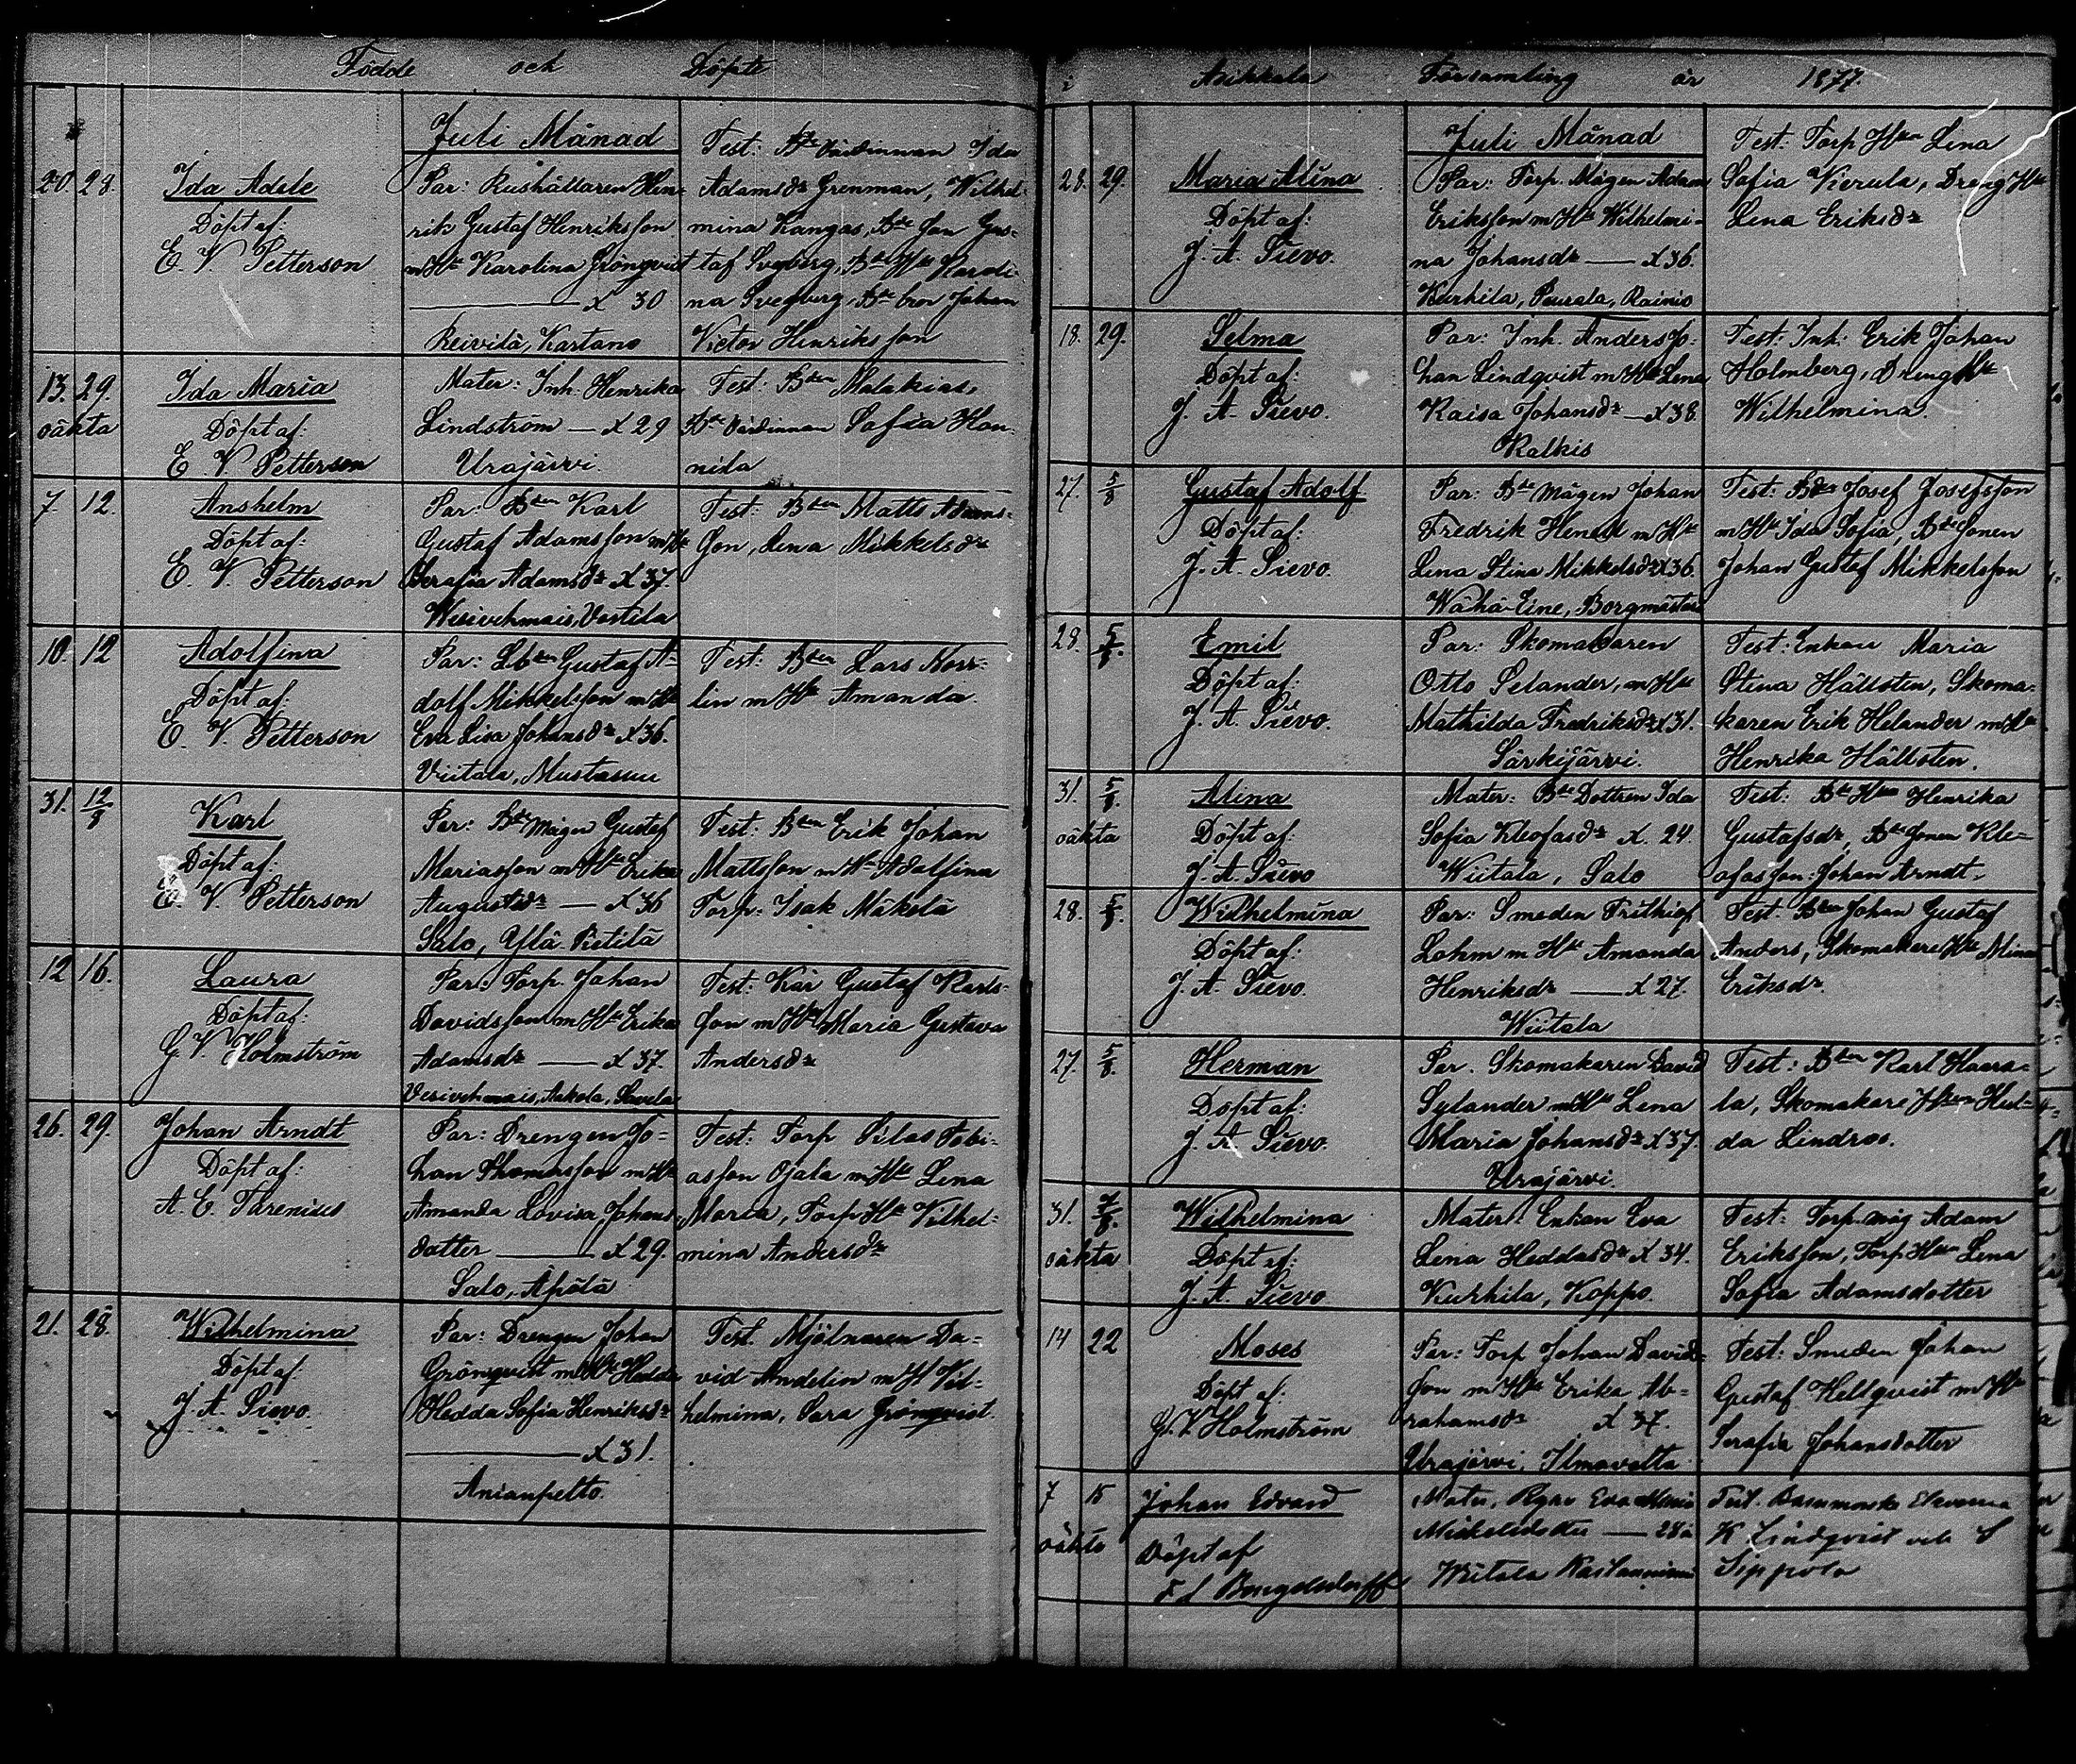 Födde och Döpte
Juli Månad
20. 28. Ida Adele
Döpt af:
E. V. Petterson
Par: Rushållaren Hen-
rik Gustaf Henriksson
m Ht Karolina Grönqvist
— x 30
Reivilä, Kartano
Test: Bde Värdinnan Ida
Adamsdr Grenman, Wilhel-
mina Kangas, Bde Son Gus-
taf Svegberg, Bde Ht Karoli-
na Svegberg, Bde bror Johan
Victor Henriksson
13. 29. Ida Maria
oäkta
Döpt af:
E. V. Petterson
Mater: Inh. Henrika
Lindström — x 29
Urajärvi.
Test: Bden Malakias,
Bde Värdinnan Sofia Hon-
nila
7. 12. Anshelm
Döpt af:
E. V. Petterson
Par: Bden Karl
Gustaf Adamsson m Ht
Serafia Adamsdr x 37.
Wesivehmais, Vostila
Test: Bden Matts Adams-
son, Lena Mikkelsdr
10. 12 Adolfina
Döpt af:
E. V. Petterson
Par: Lbden Gustaf A-
dolf Mikkelsson m Ht
Eva Lisa Johansdr x 36.
Viitala, Mustasuu
Test: Bden Lars Norr-
lin m Ht Amanda.
31. 12/8 Karl
Döpt af:
E. V. Petterson
Par: Bde Mågen Gustaf
Mariasson m Ht Erika
Augustsdr — x 36
Salo, Ylä-Pietilä
Test: Bden Erik Johan
Mattsson m Ht Adolfina
Torp: Isak Mäkelä
12 16. Laura
Döpt af:
G. V. Holmström
Par: Torp. Johan
Davidsson m Ht Erika
Adamsdr — x 37.
Vesivehmais, Aakola, Savela
Test: Kar Gustaf Karls-
son m Ht Maria Gustava
Andersdr
26. 29. Johan Arndt
Döpt af:
A. E. Florenius
Par: Drengen Jo-
han Thomasson m Ht
Amanda Lovisa Johans-
dotter — x 29.
Salo, Äpölä
Test: Torp Silas Tobi-
asson Ojala m Ht Lena
Maria, Torp Ht Vilhel-
mina Andersdr
21. 28. Wilhelmina
Döpt af:
J. A. Sievo.
Par: Drengen Johan
Grönqvist m Ht Hedda
Hedda Sofia Henriksdr
— x 31.
Anianpelto.
Test. Mjölnaren Da-
vid Andelin m H Vil-
helmina, Sara Grönqvist.
i Asikkala Församling år 1877.
Juli Månad
28. 29. Maria Alina
Döpt af:
J. A. Sievo.
Par: Torp. Mågen Adam
Eriksson m Ht Wilhelmi-
na Johansdr — x 36.
Kurhila, Peurala, Rainio
Test: Torp Hun Lena
Sofia Kerula, Dreng Ht
Lena Eriksdr
18. 29. Selma
Döpt af:
J. A. Sievo.
Par: Inh. Anders Jo-
han Lindqvist m Ht Lena
Kaisa Johansdr — x 38.
Kalkis
Test: Inh: Erik Johan
Holmberg, Dreng Ht
Wilhelmina.
27. 5/8 Gustaf Adolf
Döpt af:
J. A. Sievo.
Par: Bde Mågen Johan
Fredrik Henell m Ht
Lena Stina Mikkelsdr x 36.
Wähä-Eine, Borgmästare
Test: Bden Josef Josefsson
m Ht Ida Sofia, Bde Sonen
Johan Gustaf Mikkelsson
28. 5/8. Emil
Döpt af:
J. A. Sievo.
Par: Skomakaren
Otto Selander, m Ht
Mathilda Fredriksdr x 31.
Särkijärvi.
Test: Enkan Maria
Stina Hällsten, Skoma-
karen Erik Helander m Ht
Henrika Hällsten.
31. 5/8. Alina
oäkta
Döpt af:
J. A. Sievo
Mater: Bde Dottren Ida
Sofia Kleofasdr x. 24.
Wiitala, Salo
Test: Bde Hun Henrika
Gustafsdr, Bde Sonen Kle-
ofasson: Johan Arndt.
28. 5/8. Wilhelmina
Döpt af:
J. A. Sievo.
Par: Smeden Frithiof
Lohm m Ht Amanda
Henriksdr — x 27.
Wiitala
Test. Bden Johan Gustaf
Anders, Skomakare Ht Mina
Eriksdr.
27. 5/8. Herman
Döpt af:
J. A. Sievo.
Par. Skomakaren David
Sylander m Ht Lena
Maria Johansdr x 37.
Urajärvi.
Test: Bden Karl Haara-
la, Skomakare Hun Hul-
da Lindros.
31. 7/8. Wilhelmina
oäkta
Döpt af:
J. A. Sievo
Mater: Enkan Eva
Lena Heddasdr x 34.
Kurhila, Koppo.
Test: Torp. måg Adam
Eriksson, Torp Hun Lena
Sofia Adamsdotter
14 22 Moses
Döpt af:
G. V. Holmström
Par: Torp Johan David-
son m Ht Erika Ab-
rahamsdr x 37.
Urajärvi, Ilmavalta
Test: Smeden Johan
Gustaf Hellqvist m Ht
Serafia Johansdotter
7 15 Johan Edvard
oäkta
Döpt af
Mater, Eva Maria
Mickelsdotter — 28 å
Wiitala
Test.
K Lindqvist och
Sippola